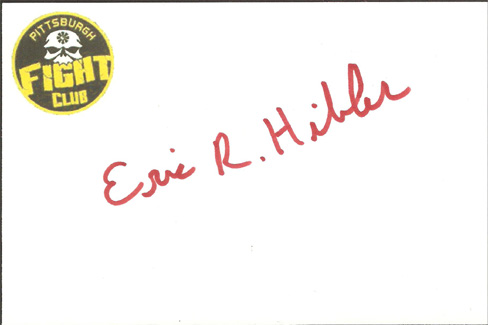 PITTSBURGH
FIGHT
CLUB
Eric R. Hibler